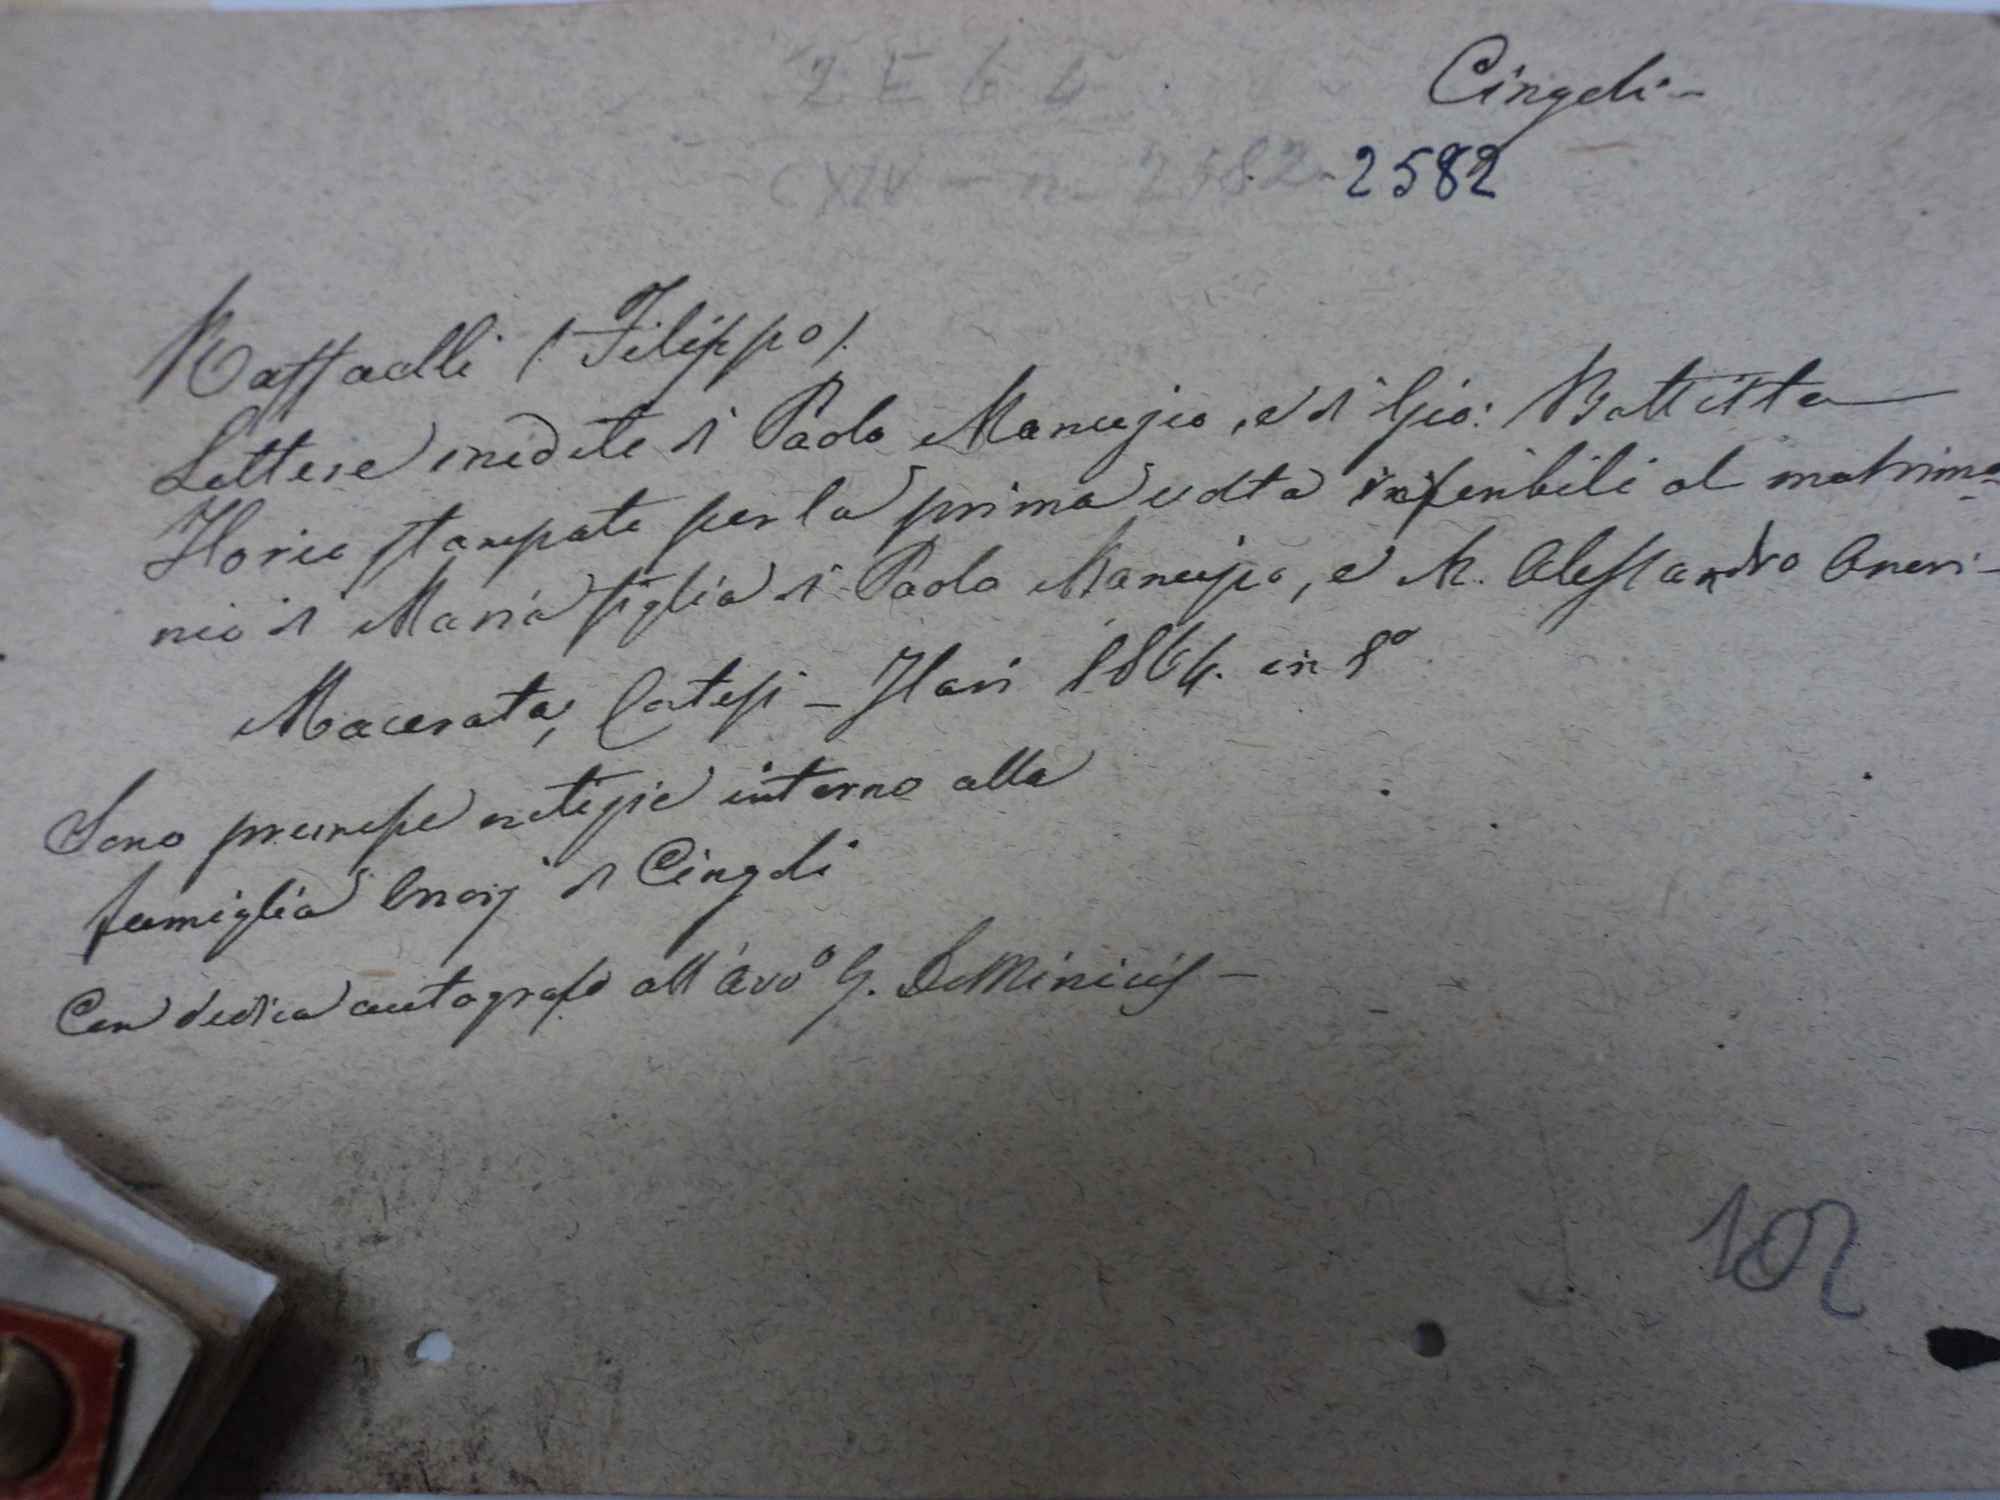 Cingoli -
CXIV - n. 2582 - 2582
Raffaelli (Filippo).
Lettere inedite di Paolo Manuzio, e di Gio: Battista
Ilorio stampate per la prima volta riferibili al matrimo=
nio di Maria figlia di Paolo Manuzio, e M. Alessandro
Macerata, Cortesi - Ilari 1864. in 8º
Sono premesse notizie intorno alla
famiglia di Cingoli
Con dedica autografa all'avvº G. DeMinicis -
102